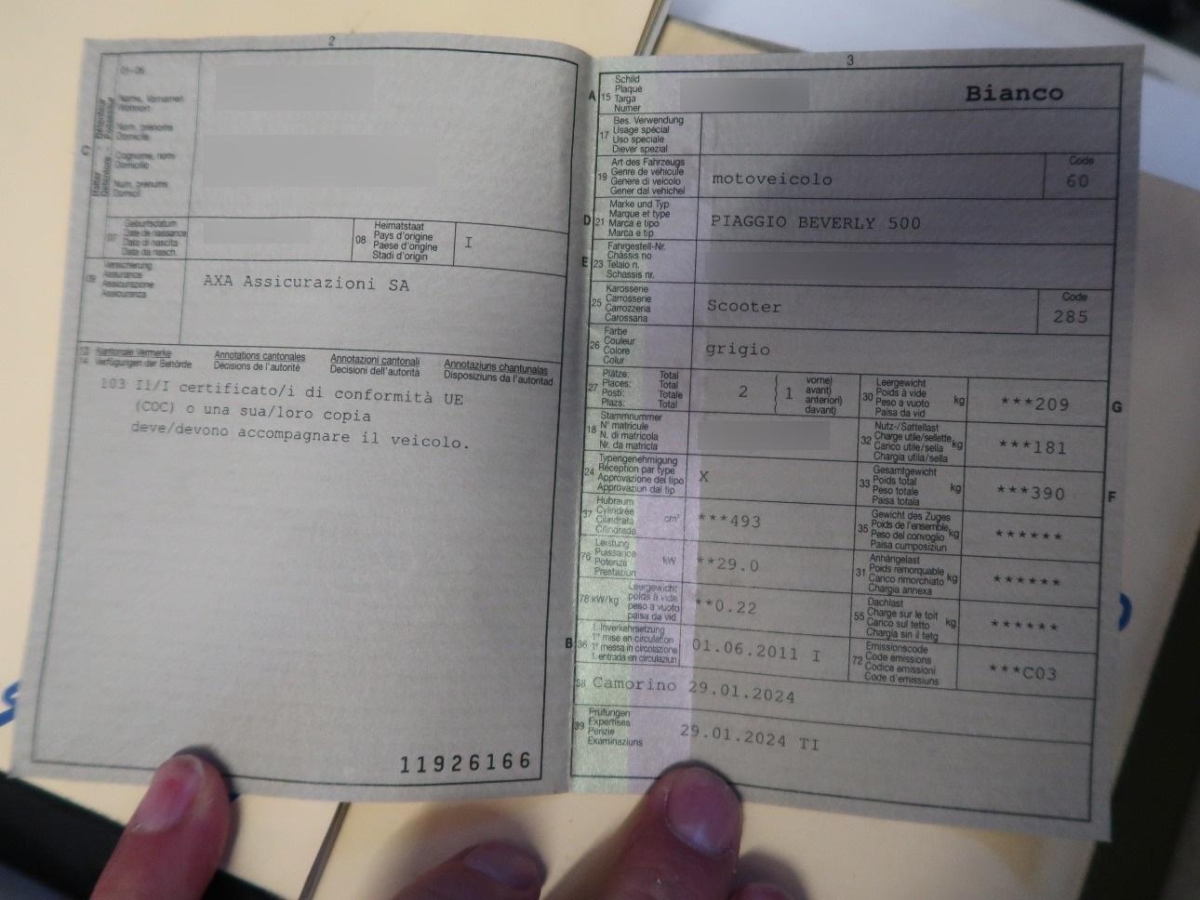 2
01-06
Name, Vornamen
Wohnort
Nom, prénoms
Domicile
Cognome, nomi
Domicilio
Num, prenums
Domicil
C
07
Geburtsdatum
Date de naissance
Data di nascita
Data da nasch.
08
Heimatstaat
Pays d'origine
Paese d'origine
Stadi d'origin
I
09
Versicherung
Assurance
Assicurazione
Assicuranza
AXA Assicurazioni SA
13
14
Kantonale Vermerke
Verfügungen der Behörde
Annotations cantonales
Décisions de l'autorité
Annotazioni cantonali
Decisioni dell'autorità
Annotaziuns chantunalas
Disposiziuns da l'autoritad
103 Il/I certificato/i di conformità UE
(COC) o una sua/loro copia
deve/devono accompagnare il veicolo.
11926166
3
A 15
Schild
Plaque
Targa
Numer
Bianco
17
Bes. Verwendung
Usage spécial
Uso speciale
Diever spezial
19
Art des Fahrzeugs
Genre de véhicule
Genere di veicolo
Gener dal vehichel
motoveicolo
Code
60
D 21
Marke und Typ
Marque et type
Marca e tipo
Marca e tip
PIAGGIO BEVERLY 500
E 23
Fahrgestell-Nr.
Châssis no
Telaio n.
Schassis nr.
25
Karosserie
Carrosserie
Carrozzeria
Carossaria
Scooter
Code
285
26
Farbe
Couleur
Colore
Colur
grigio
27
Plätze: Total
Places: Total
Posti: Totale
Plazs: Total
2
1
vorne)
avant)
anteriori)
davant)
30
Leergewicht
Poids à vide
Peso a vuoto
Paisa da vid
kg
***209
G
18
Stammnummer
N° matricule
N. di matricola
Nr. da matricla
32
Nutz-/Sattellast
Charge utile/sellette
Carico utile/sella
Chargia utila/sella
kg
***181
24
Typengenehmigung
Réception par type
Approvazione del tipo
Approvaziun dal tip
X
33
Gesamtgewicht
Poids total
Peso totale
Paisa totala
kg
***390
F
37
Hubraum
Cylindrée
Cilindrata
Cilindrada
cm³
***493
35
Gewicht des Zuges
Poids de l'ensemble
Peso del convoglio
Paisa cumposiziun
kg
******
76
Leistung
Puissance
Potenza
Prestaziun
kW
**29.0
31
Anhängelast
Poids remorquable
Carico rimorchiato
Chargia annexa
kg
******
78 kW/kg
Leergewicht
poids à vide
peso a vuoto
paisa da vid
**0.22
55
Dachlast
Charge sur le toit
Carico sul tetto
Chargia sin il tetg
kg
******
B 36
1. Inverkehrsetzung
1re mise en circulation
1a messa in circolazione
1. entrada en circulaziun
01.06.2011 I
72
Emissionscode
Code émissions
Codice emissioni
Code d'emissiuns
***C03
38
Camorino 29.01.2024
39
Prüfungen
Expertises
Perizie
Examinaziuns
29.01.2024 TI